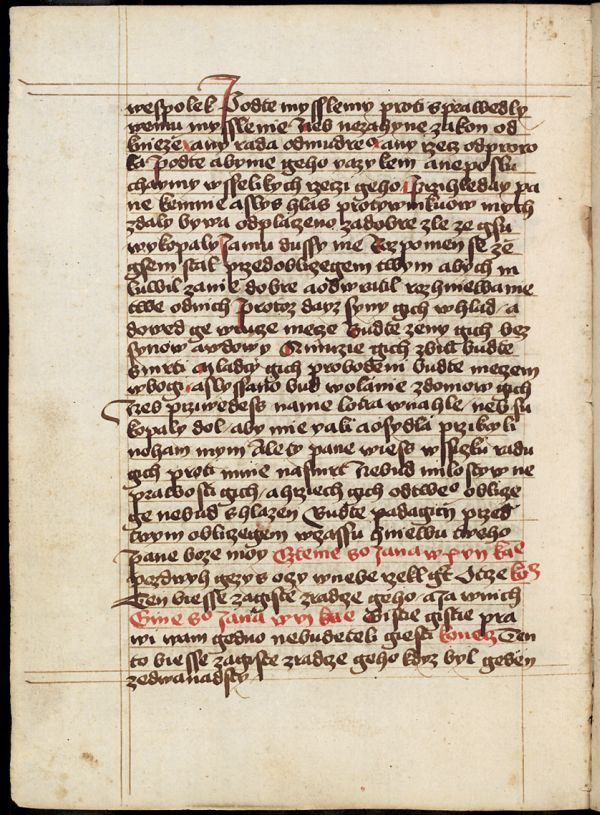 wespolek Podte myslemy proti sprawedly
wemu myssleme Neb nezahyne zakon od
knieze any rada odmudreo any rzecz odproro
ka Podte abyme geho vazykem aneposlu
chaymy wsselikych rzeczi geho Przihleday pa
ne kemnie aslys hlas protywnikuow mych
zdaly bywa odplaczeno zadobre zle ze gsu
wykopaly Jamu dussy me Rozpomen se ze
gsem stal przedoblizegem twym abych m
luwil zanie dobre aodwratil rozhniewanie
twe odnich Protoz dayz syny gich whlad a
dowed ge wruze mecze Budte zeny gich bez
synow awdowy Amuzie gich zbiti budte
smrti Mladcy gich probodeni budte meczem
wbogi aslyssano bud wolanie zdomow gich
Nes prziwedess nanie lotra wnahle neb su
kopaly dol aby mie yali aosydla przikryli
noham mym Ale ty pane wiess wssiczku radu
gich proti mnie nasmrt Nebud milostyw ne
prawosti gich ahrziech gich odtweo oblicze
ge nebud shlazen Budte padagicy przed
twym oblizegem wczassu hniewu tweho
Pane boze moy Cztenie so Jana w xvii kae
Pozdwyh gezys oczy wnebe rzekl gt Otcze koz
Ten biesse zagiste zradce geho a Ja wnich
Gine so Jana w vi kae Gistie gistie pra
wi wam gedno nebudeteli giesti konecz Ten
to biesse zagiste zradce geho kdyz byl geden
zedwanadsty